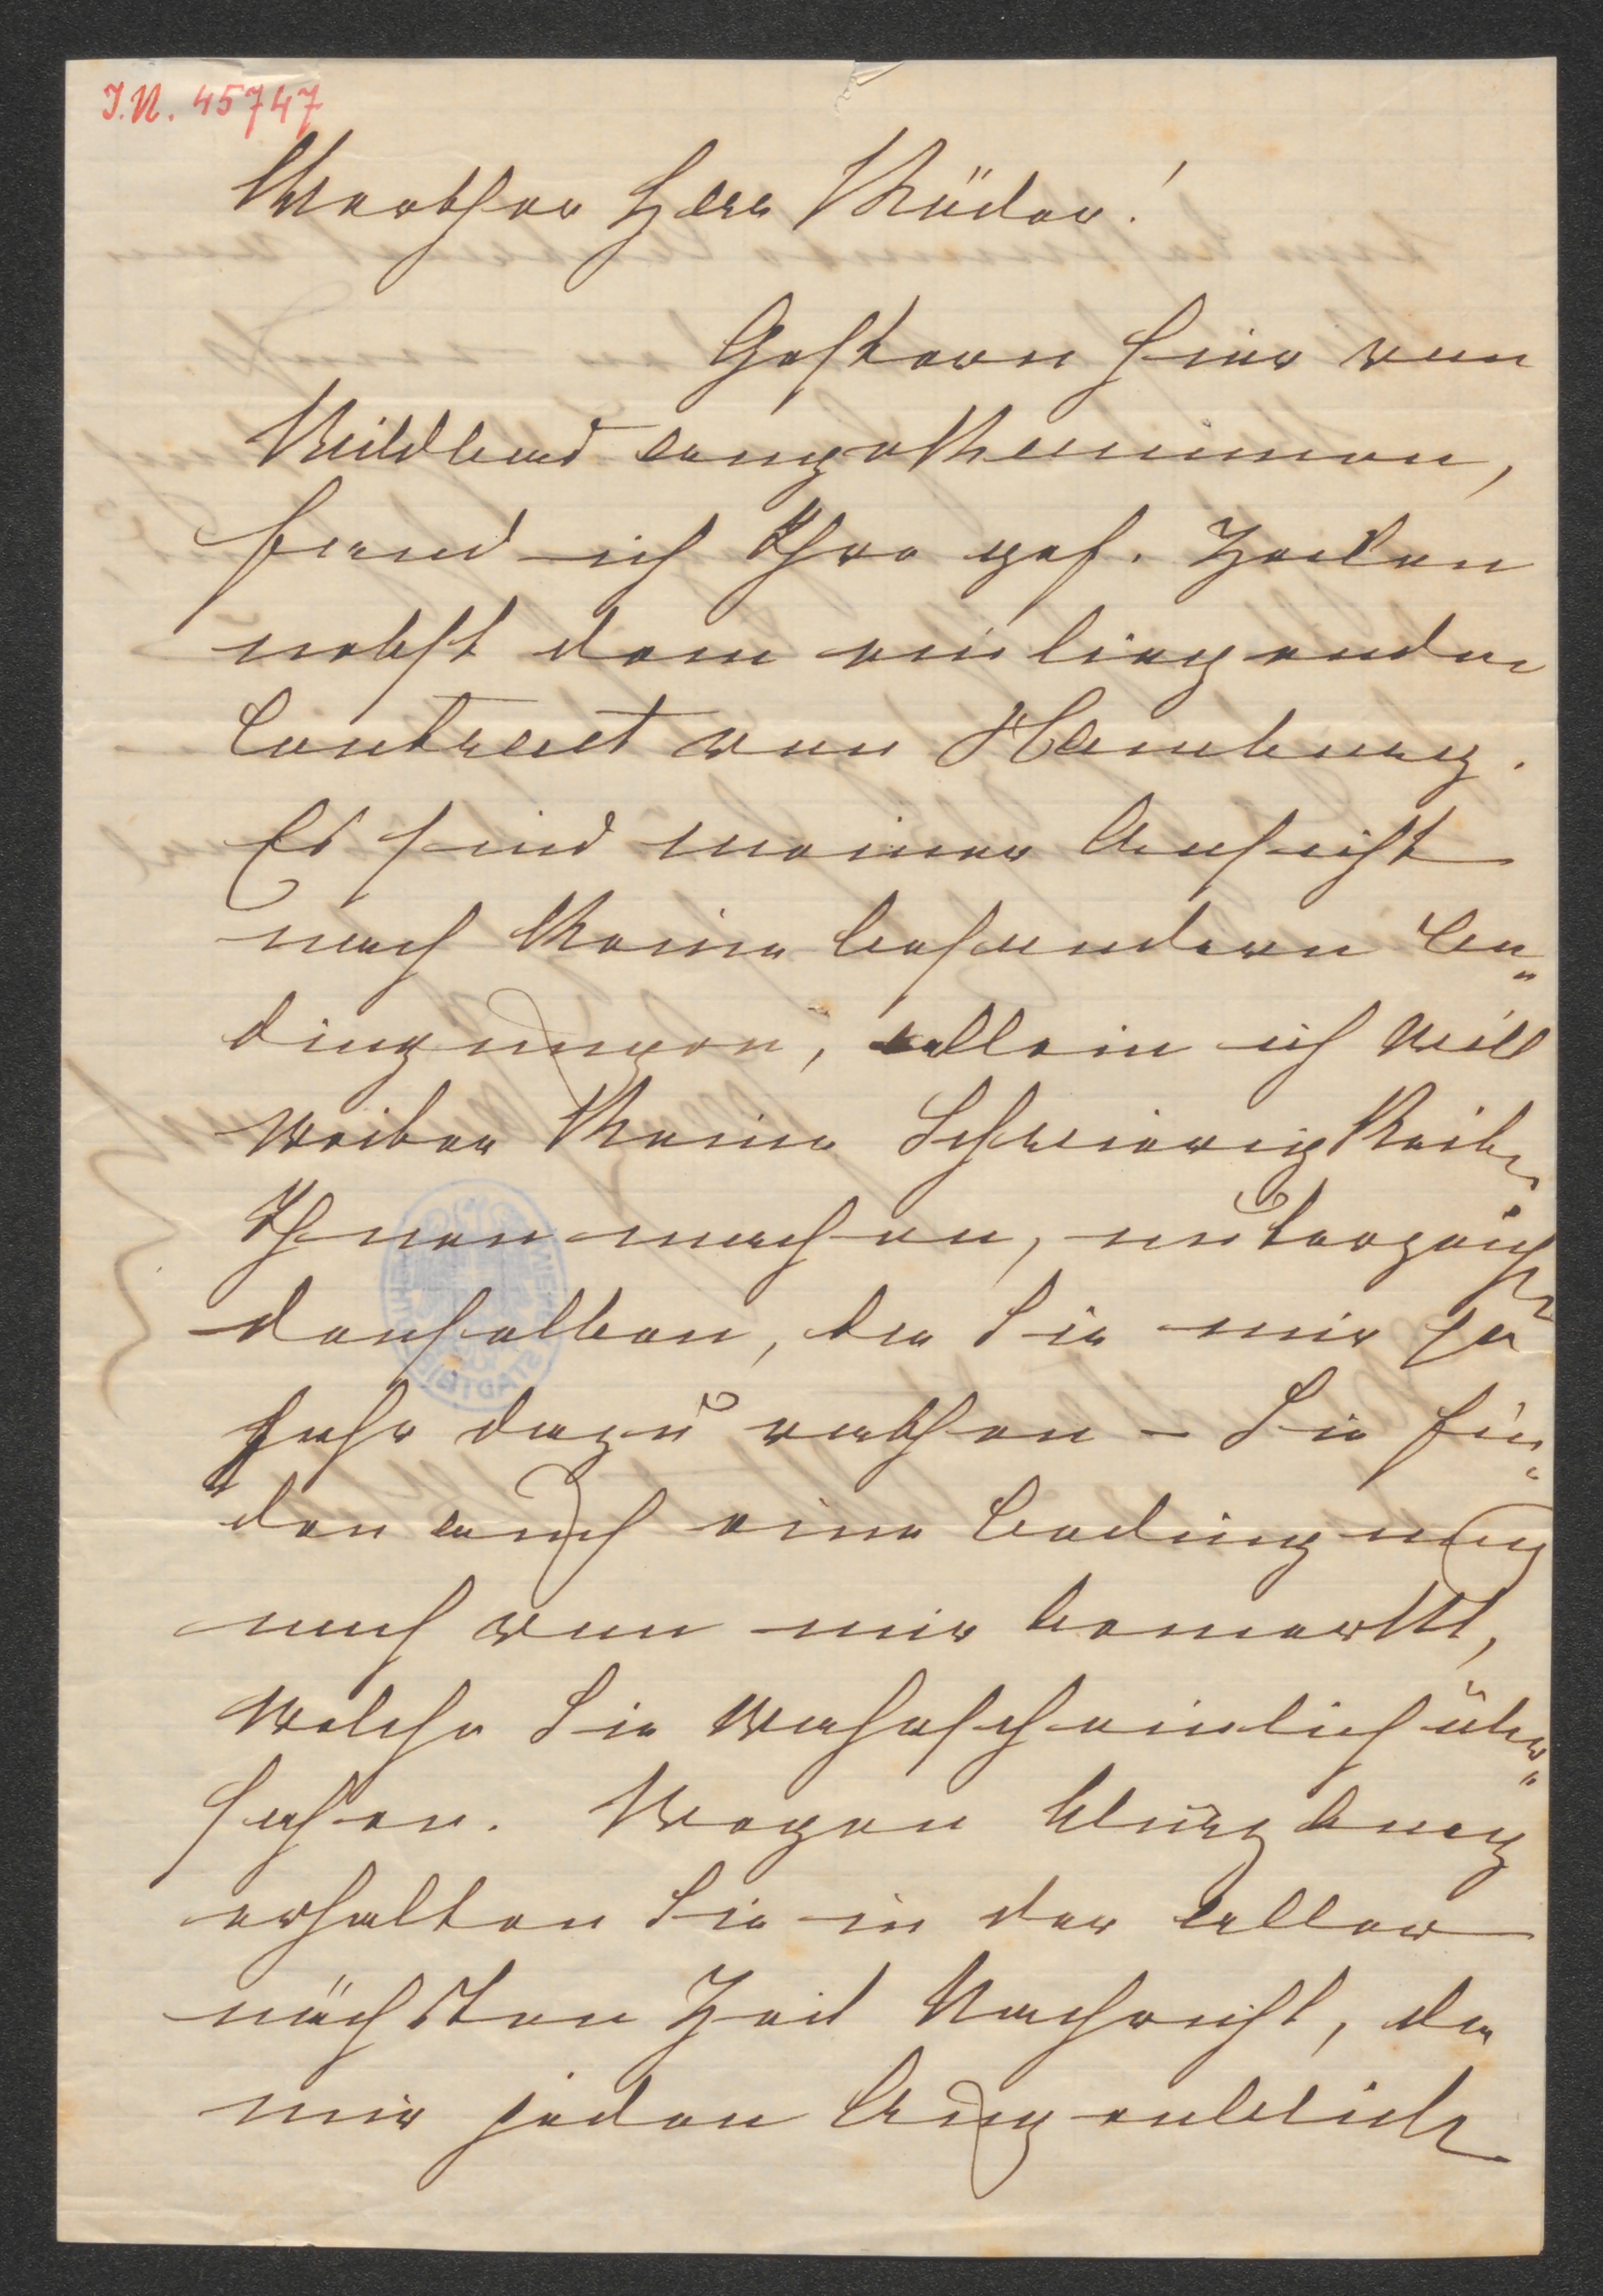 I.N. 45747
Werther Herr Röder!
Gestern hier von
Wildbad angekommen,
fand ich Ihre gef. Zeilen
nebst dem einliegenden
Contract von Hamburg.
Es sind meiner Ansicht
nach keine besondern Be„
dingungen, allein ich will
weiter keine Schwierigkeiten
Ihnen machen, unterzeichne
denselben, da Sie mir ja
sehr dazu rathen – Sie fin„
den auch eine Bedingung
noch von mir bemerkt,
welche Sie wahrscheinlich über„
sahen. Wegen
erhalten Sie in der aller
nächsten Zeit Nachricht, da
mir jeden Augenblick